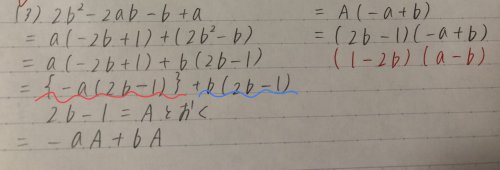 (3) 2b²-2ab-b+a
= a(-2b+1)+(2b²-b)
= a(-2b+1)+b(2b-1)
= {-a(2b-1)}+b(2b-1)
2b-1=Aとおく
= -aA+bA
= A(-a+b)
= (2b-1)(-a+b)
(1-2b)(a-b)